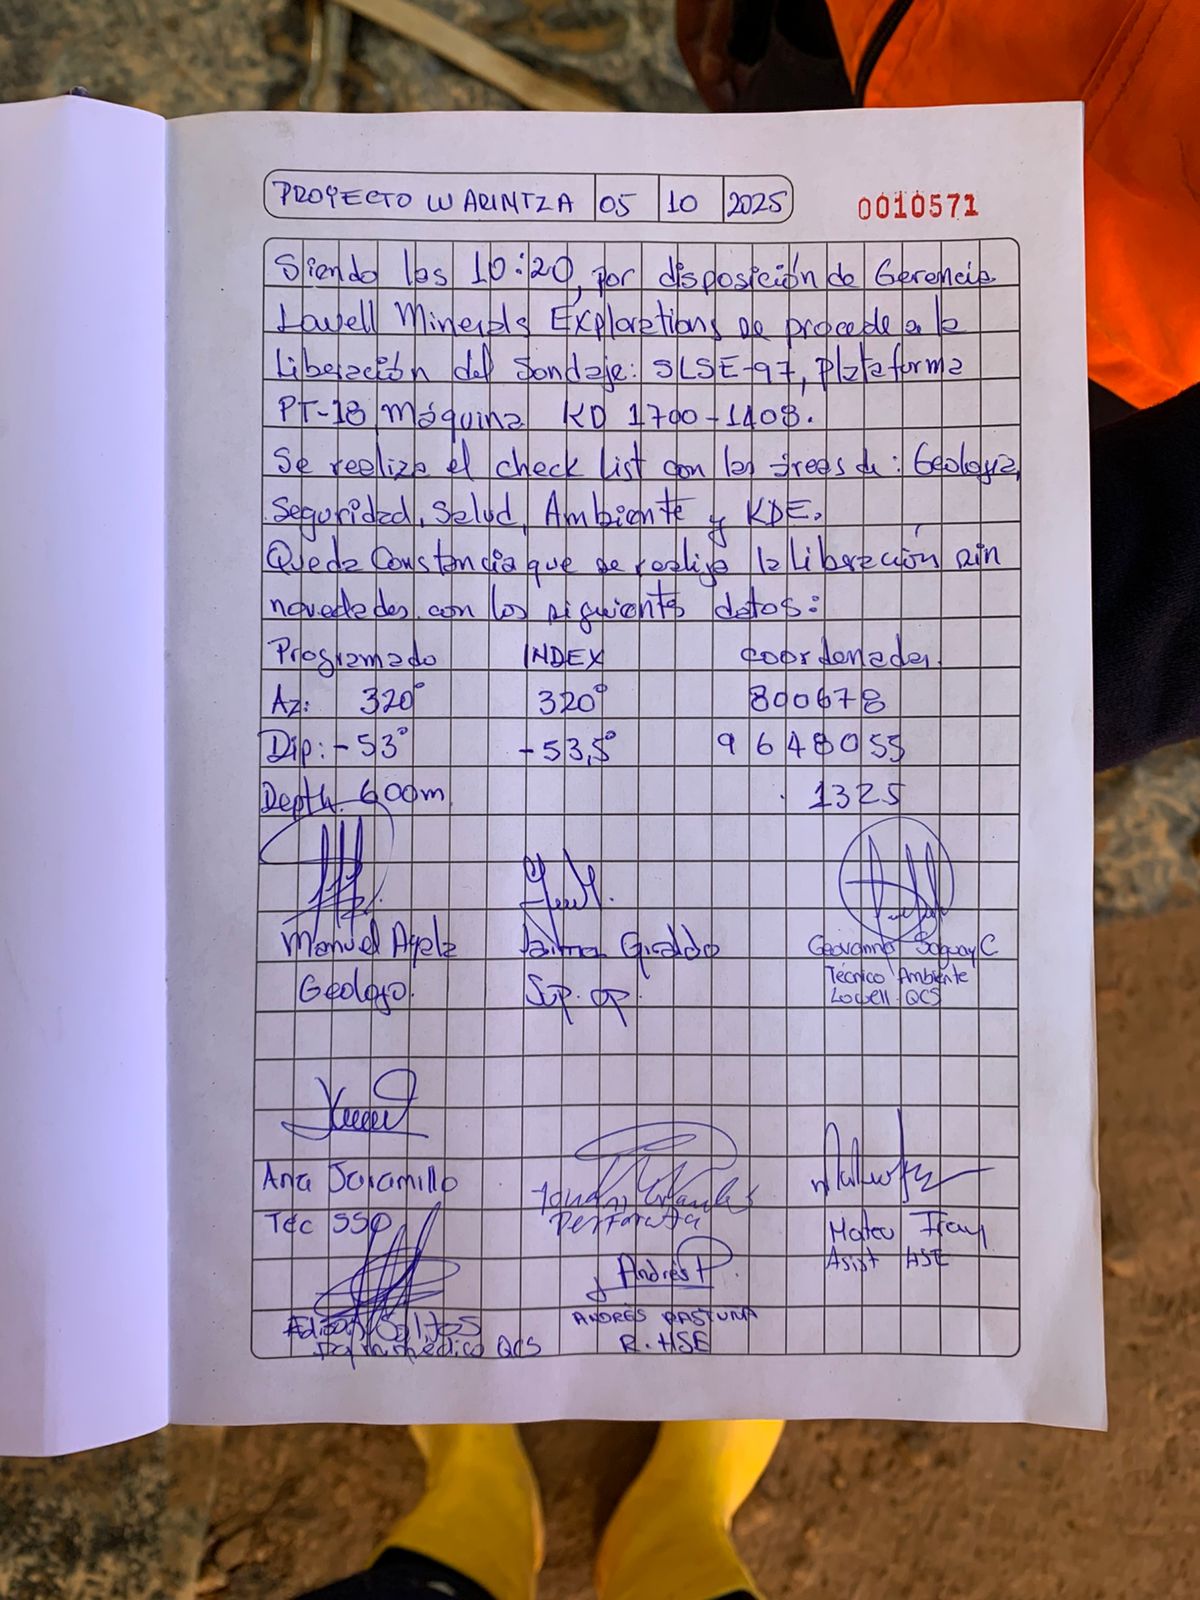 PROYECTO WARINTZA 05 10 2025 0010571
Siendo las 10:20, por disposición de Gerencia
Lowell Minerals Explorations se procede a la
Liberación del Sondaje: SLSE-97, Plataforma
PT-18 Máquina KD 1700-1408.
Se realiza el check list con las áreas de: Geología,
Seguridad, Salud, Ambiente y KDE.
Queda Constancia que se realiza la Liberación sin
novedades con los siguientes datos:
Programado INDEX coordenadas.
Az: 320° 320° 800678
Dip: -53° -53,5° 9648055
Depth: 600m 1325
Manuel Ayala Jaime Giraldo Geovanno Saguay C
Geologo. Sup. op. Técnico Ambiente
Lowell QCS
Ana Jaramillo
Tec SSO Perforista Mateo
Asist HSE
Andrés P.
ANDRÉS PASTUÑA
Paramédico QCS R. HSE